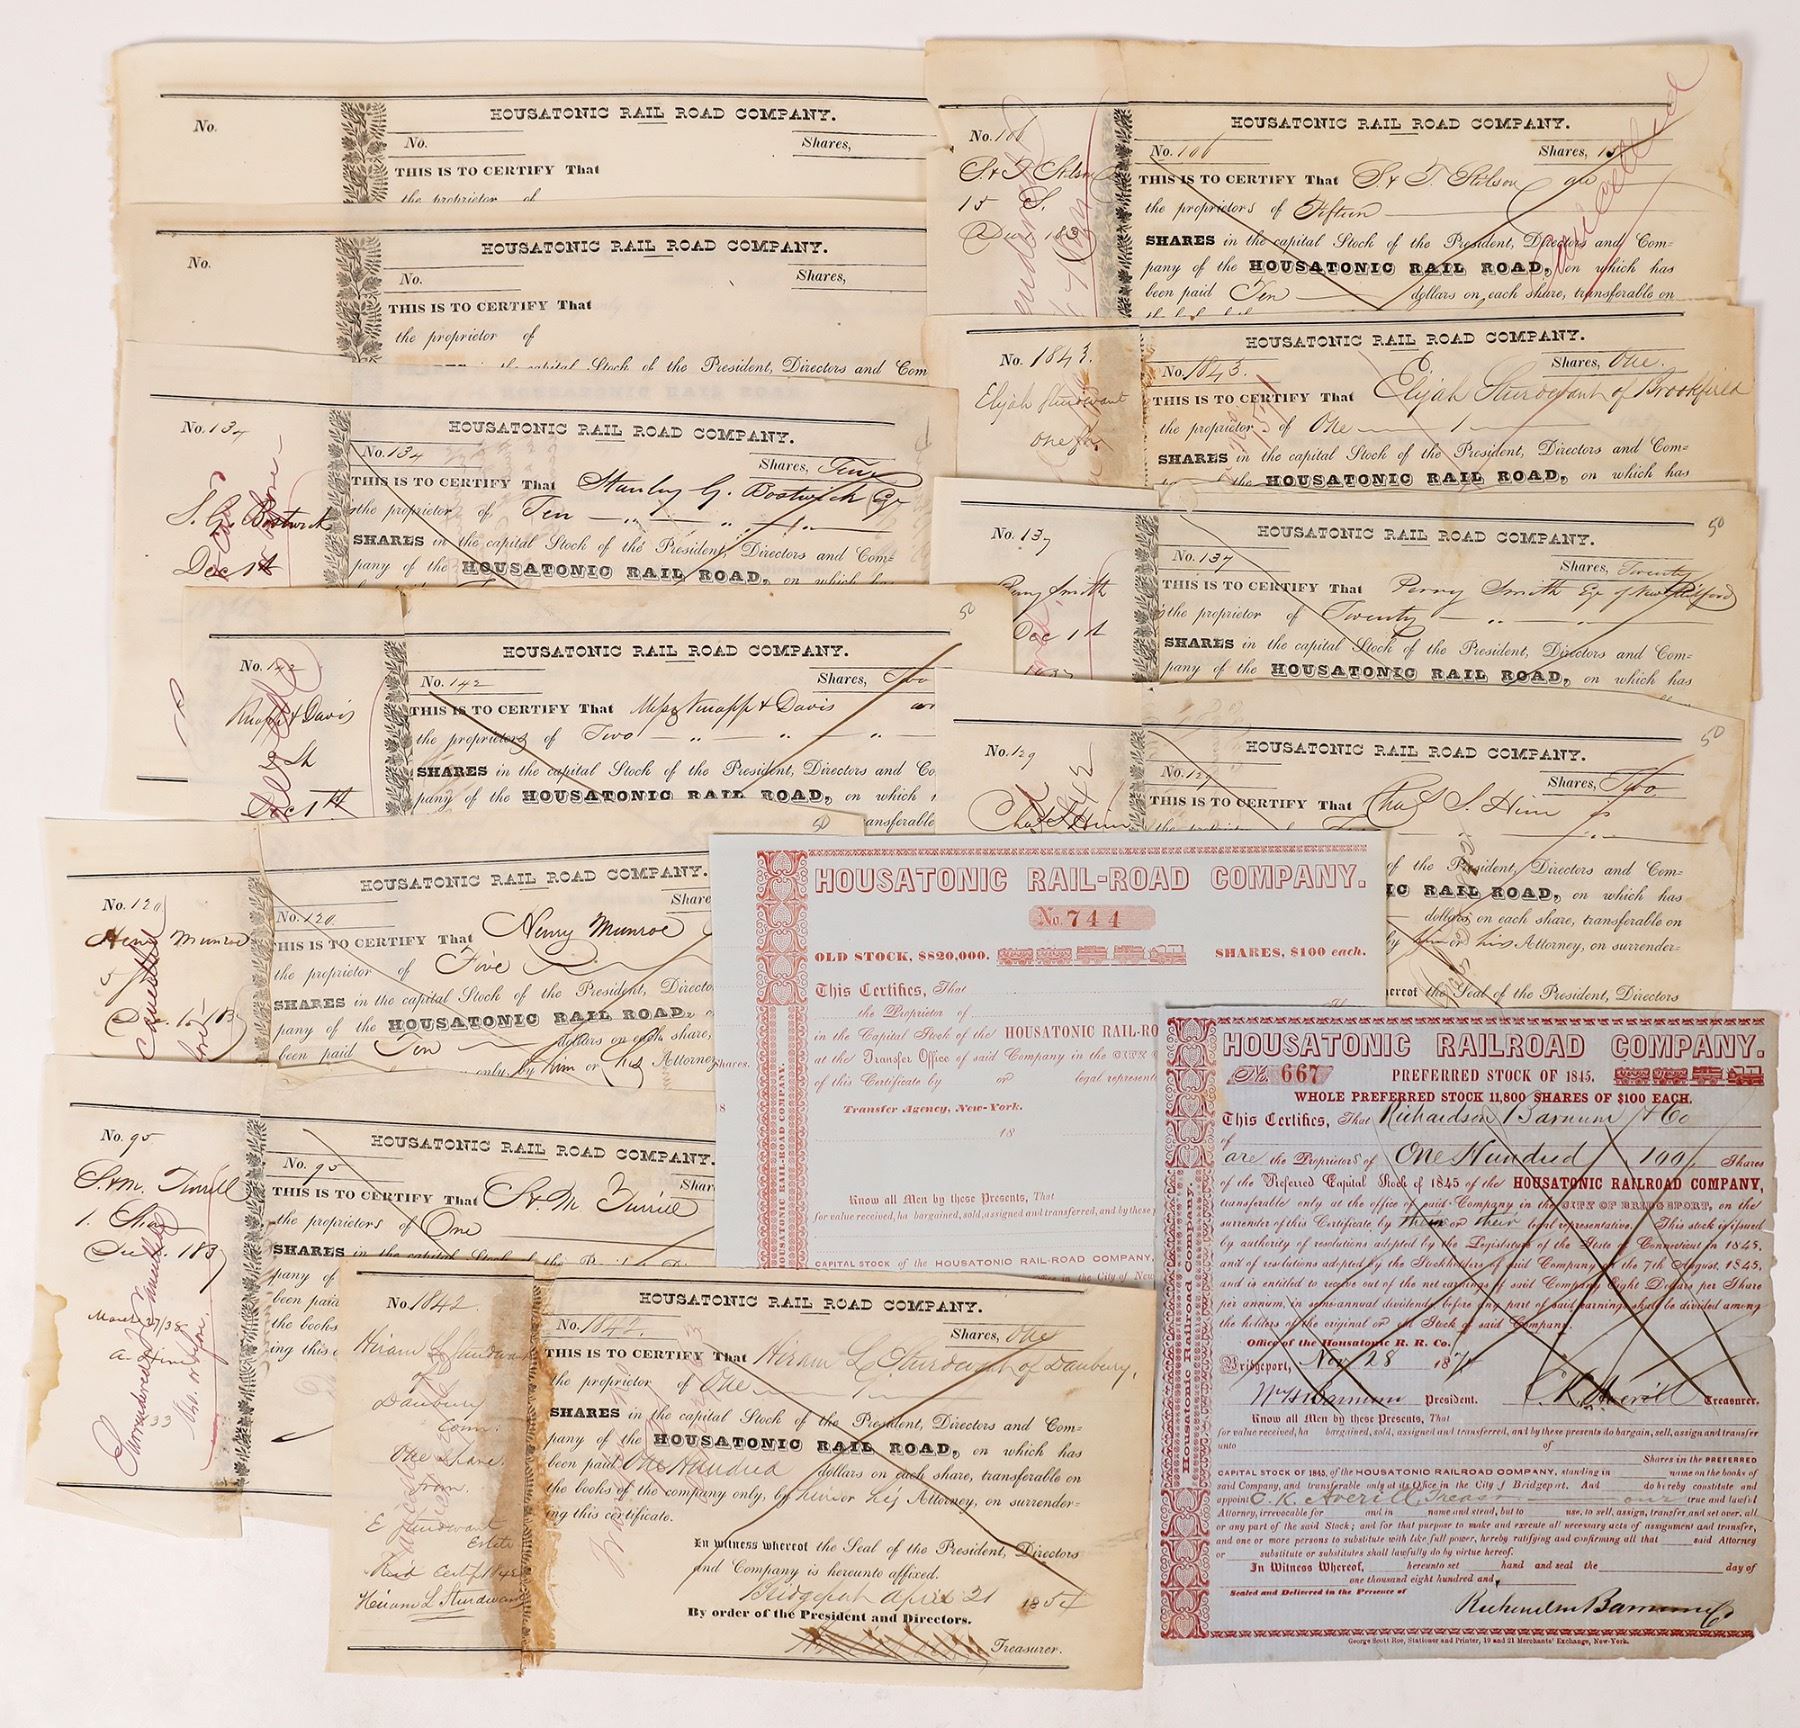 No.
HOUSATONIC RAIL ROAD COMPANY.
No.
Shares,
THIS IS TO CERTIFY That
the proprietor of
No.
HOUSATONIC RAIL ROAD COMPANY.
No.
Shares,
THIS IS TO CERTIFY That
the proprietor of
in the capital Stock of the President, Directors and Com
No. 134
S. G. Bostwick
Dec 1st
HOUSATONIC RAIL ROAD COMPANY.
No. 134
Shares, Ten
THIS IS TO CERTIFY That Stanley G. Bostwick
the proprietor of Ten
SHARES in the capital Stock of the President, Directors and Com=
pany of the HOUSATONIC RAIL ROAD, on which has
50
No. 142
Knapp & Davis
2 Sh
Dec 1st
HOUSATONIC RAIL ROAD COMPANY.
No. 142
Shares, Two
THIS IS TO CERTIFY That Mess Knapp & Davis
the proprietors of Two
SHARES in the capital Stock of the President, Directors and Co
pany of the HOUSATONIC RAIL ROAD, on which
ansferable
50
No. 120
Henry Munroe
5
Cancelled
HOUSATONIC RAIL ROAD COMPANY.
No. 120.
Share
THIS IS TO CERTIFY That Henry Munroe
the proprietor of Five
SHARES in the capital Stock of the President, Directo
pany of the HOUSATONIC RAIL ROAD,
been paid Ten dollars on each share,
only, by him or his Attorney
No. 95
S. & M. Turrill
1. Sha
Dec. 183
March 27/38
HOUSATONIC RAIL ROAD COMPANY.
No. 95
Shar
THIS IS TO CERTIFY That S. & M. Turrill
the proprietors of One
SHARES in the capital Stock of the President, Di
pany of
been paid
the books
ing this c
No. 1842.
Hiram L Sturdevant
of
Danbury
Conn.
One Share.
from
E Sturdevant
Estate
Hiram L Sturdevant
HOUSATONIC RAIL ROAD COMPANY.
No. 1842.
Shares, One
THIS IS TO CERTIFY That Hiram L Sturdevant of Danbury,
the proprietor of One
SHARES in the capital Stock of the President, Directors and Com=
pany of the HOUSATONIC RAIL ROAD, on which has
been paid One Hundred dollars on each share, transferable on
the books of the company only, by him or his Attorney, on surrender-
ing this certificate.
In witness whereof the Seal of the President, Directors
and Company is hereunto affixed.
Bridgeport April 21 1854
By order of the President and Directors.
Treasurer.
No. 106
S. & T. Stilson
15 S.
Cancelled
HOUSATONIC RAIL ROAD COMPANY.
No. 106
Shares, 15
THIS IS TO CERTIFY That S. & T. Stilson are
the proprietors of Fifteen
SHARES in the capital Stock of the President, Directors and Com=
pany of the HOUSATONIC RAIL ROAD, on which has
been paid Ten dollars on each share, transferable on
No. 1843.
Elijah Sturdevant
HOUSATONIC RAIL ROAD COMPANY.
No. 1843.
Shares, One.
THIS IS TO CERTIFY That Elijah Sturdevant of Brookfield
the proprietor of One
SHARES in the capital Stock of the President, Directors and Com=
the HOUSATONIC RAIL ROAD, on which has
50
No. 137
Perry Smith
Dec 1st
HOUSATONIC RAIL ROAD COMPANY.
No. 137
Shares, Twenty
THIS IS TO CERTIFY That Perry Smith Eqr of New Milford
the proprietor of Twenty
SHARES in the capital Stock of the President, Directors and Com=
pany of the HOUSATONIC RAIL ROAD, on which has
50
No. 129
HOUSATONIC RAIL ROAD COMPANY.
No. 129
Shares, Two
THIS IS TO CERTIFY That Chas S. Hine is
of the President, Directors and Com=
IC RAIL ROAD, on which has
dollars on each share, transferable on
by him or his Attorney, on surrender=
hereof the Seal of the President, Directors
HOUSATONIC RAIL-ROAD COMPANY.
No. 744
OLD STOCK, $820,000.
SHARES, $100 each.
This Certifies, That
the Proprietor of
in the Capital Stock of the HOUSATONIC RAIL-RO
at the Transfer Office of said Company in the CITY
of this Certificate by or legal represent
Transfer Agency, New-York.
18
Shares.
18
Know all Men by these Presents, That
for value received, ha bargained, sold, assigned and transferred, and by these
CAPITAL STOCK OF the HOUSATONIC RAIL-ROAD COMPANY,
in the City of New
HOUSATONIC RAIL-ROAD COMPANY.
HOUSATONIC RAILROAD COMPANY.
No. 667
PREFERRED STOCK OF 1845.
WHOLE PREFERRED STOCK 11,800 SHARES OF $100 EACH.
This Certifies, That Richardson Barnum & Co
of
are the Proprietors of One Hundred 100 Shares
of the Preferred Capital Stock of 1845 of the HOUSATONIC RAILROAD COMPANY,
transferable only at the office of said Company in the CITY OF BRIDGEPORT, on the
surrender of this Certificate by their or their legal representative. This stock is issued
by authority of resolutions adopted by the Legislature of the State of Connecticut in 1845,
and of resolutions adopted by the Stockholders of said Company on the 7th August, 1845,
and is entitled to receive out of the net earnings of said Company Eight Dollars per Share
per annum, in semi-annual dividends, before any part of said earnings shall be divided among
the holders of the original or old Stock of said Company.
Office of the Housatonic R. R. Co.
Bridgeport, Nov 28 1874
Wm H Barnum President.
C. K. Averill Treasurer.
Know all Men by these Presents, That
for value received, ha bargained, sold, assigned and transferred, and by these presents do bargain, sell, assign and transfer
unto of
Shares in the PREFERRED
CAPITAL STOCK OF 1845, of the HOUSATONIC RAILROAD COMPANY, standing in name on the books of
said Company, and transferable only at its Office in the City of Bridgeport. And do hereby constitute and
appoint C. K. Averill Treasr our true and lawful
Attorney, irrevocable for and in name and stead, but to use, to sell, assign, transfer, and set over, all
or any part of the said Stock; and for that purpose to make and execute all necessary acts of assignment and transfer,
and one or more persons to substitute with like full power, hereby ratifying and confirming all that said Attorney
or substitute or substitutes shall lawfully do by virtue hereof.
In Witness Whereof, hereunto set hand and seal the day of
one thousand eight hundred and
Sealed and Delivered in the Presence of
Richardson Barnum & Co
George Scott Roe, Stationer and Printer, 19 and 21 Merchants' Exchange, New-York.
Housatonic Railroad Company.